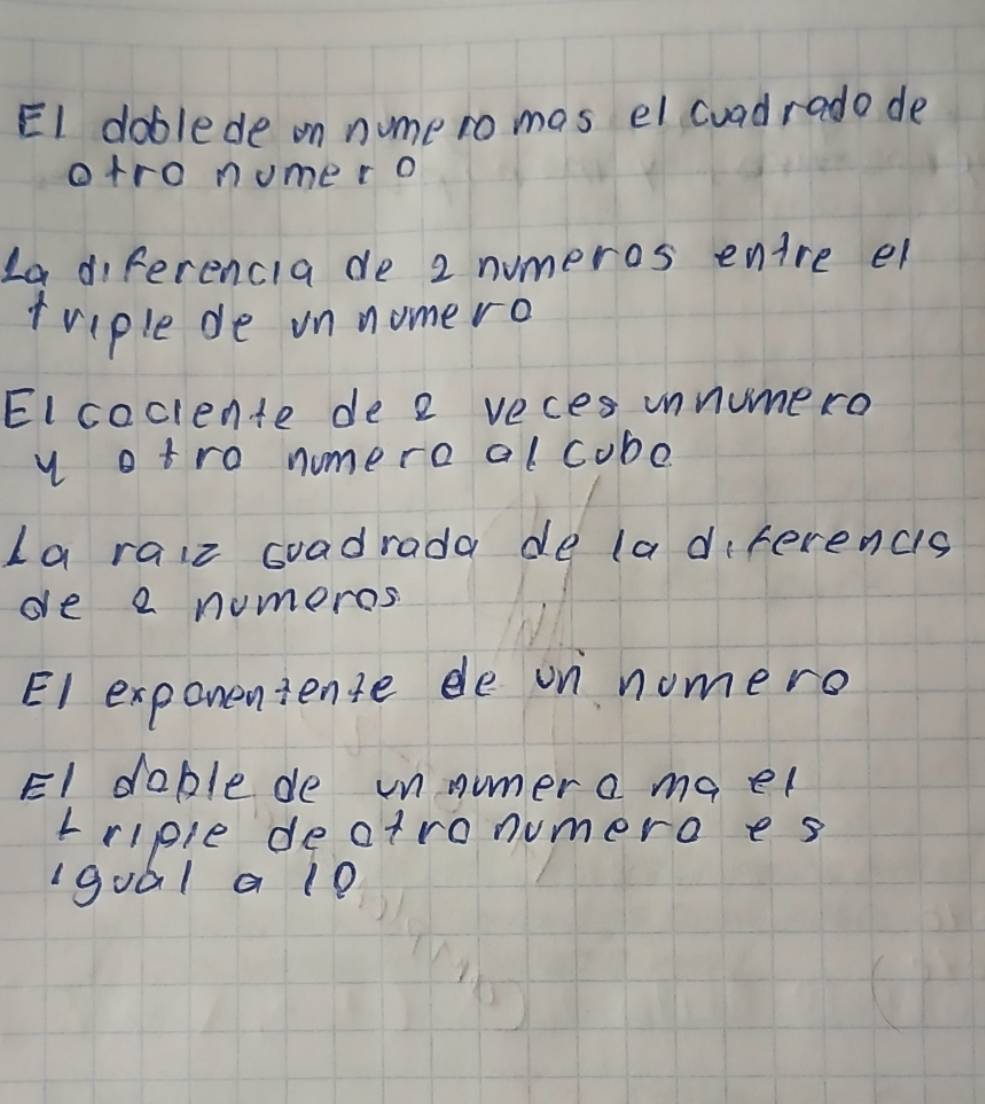 El doblede un numero mas el cuadrado de
otro numero
La diferencia de 2 numeros entre el
triple de un numero
El cociente de 2 veces un numero
y otro numero al cubo
La raiz cuadrada de la diferencis
de 2 numeros
El exponentente de un numero
El doble de un numero ma el
triple de otro numero es
igual a 10